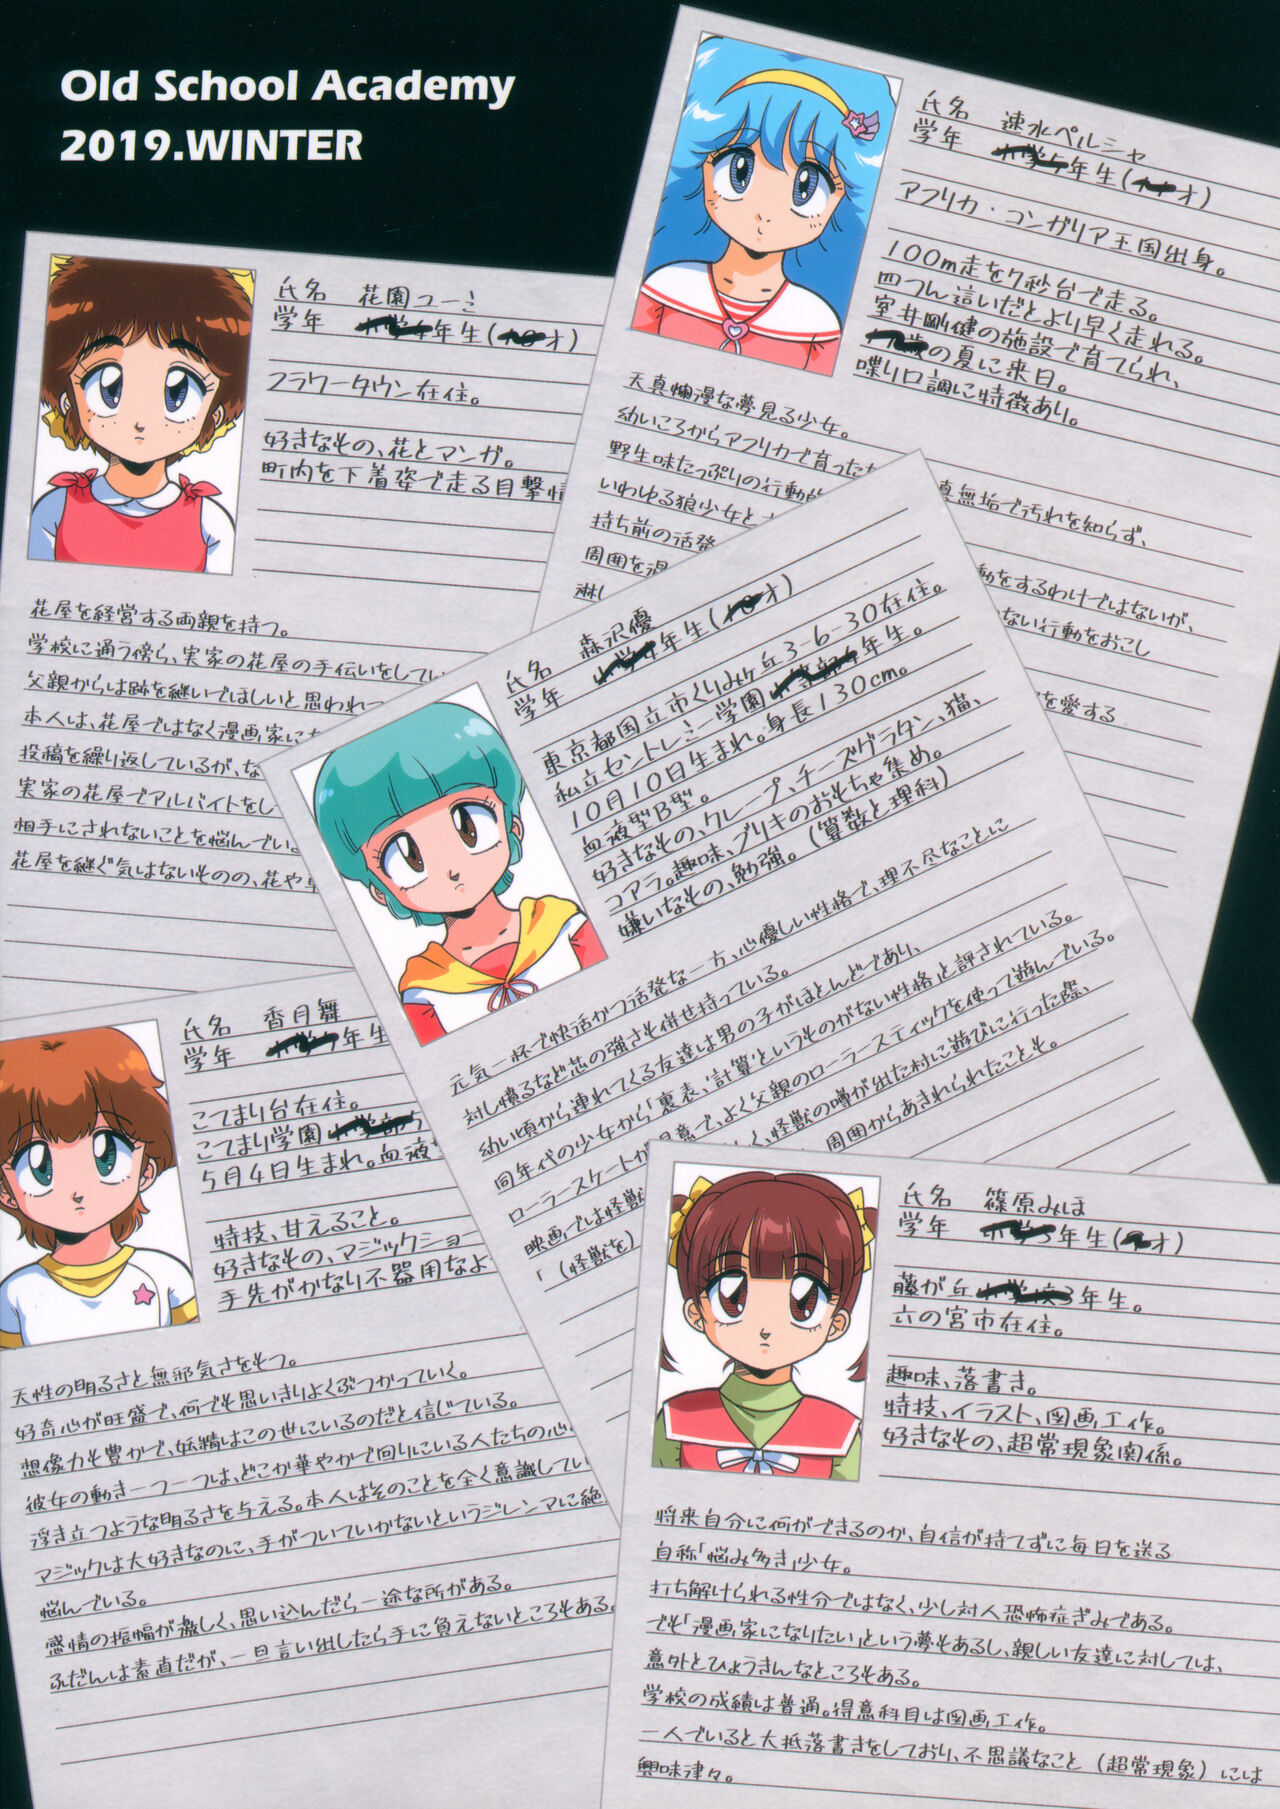 Old School Academy
2019.WINTER
氏名 速水ペルシャ
学年 年生(才)
アフリカ・コンガリア王国出身。
100m走を7秒台で走る。
四つん這いだとより早く走れる。
室井剛健の施設で育てられ、
の夏に来日。
喋り口調に特徴あり。
天真爛漫な夢見る少女。
幼いころからアフリカで育ったた
真無垢で汚れを知らず、
野生味たっぷりの行動的
いわゆる狼少女と
動をするわけではないが、
持ち前の活発
ない行動をおこし
周囲を混
淋し
を愛する
氏名 花園ユーミ
学年 年生(才)
フラワータウン在住。
好きなもの、花とマンガ。
町内を下着姿で走る目撃情
花屋を経営する両親を持つ。
学校に通う傍ら、実家の花屋の手伝いをしてい
父親からは跡を継いでほしいと思われつ
本人は、花屋ではなく漫画家に
投稿を繰り返しているが、な
実家の花屋でアルバイトをし
相手にされないことを悩んでい
花屋を継ぐ気はないものの、花や
氏名 森沢優
学年 年生(才)
東京都国立市くりみヶ丘3-6-30在住。
私立セントレミー学園 年生。
10月10日生まれ。身長130cm。
血液型B型。
好きなもの、クレープ、チーズグラタン、猫、
コアラ。趣味、ブリキのおもちゃ集め。
嫌いなもの、勉強。(算数と理科)
元気一杯で快活かつ活発な一方、心優しい性格で、理不尽なことに
対し憤るなど芯の強さも併せ持っている。
幼い頃から連れてくる友達は男の子がほとんどであり、
同年代の少女から「裏表、計算」というものがない性格」と評されている。
ローラースケートが得意で、よく父親のローラースティックを使って遊んでいる。
映画では怪獣 く、怪獣の噂が出た村に遊びに行った際、
「(怪獣を) 周囲からあきれられたことも。
氏名 香月舞
学年 年生
こてまり台在住。
こてまり学園
5月4日生まれ。血液型
特技、甘えること。
好きなもの、マジックショー
手先がかなり不器用なよ
天性の明るさと無邪気さをもつ。
好奇心が旺盛で、何でも思いきりよくぶつかっていく。
想像力も豊かで、妖精はこの世にいるのだと信じている。
彼女の動き一つ一つは、どこか華やかで回りにいる人たちの心
浮き立つような明るさを与える。本人はそのことを全く意識してい
マジックは大好きなのに、手がついていかないというジレンマに絶
悩んでいる。
感情の振幅が激しく、思い込んだら一途な所がある。
ふだんは素直だが、一旦言い出したら手に負えないところもある。
氏名 篠原みほ
学年 年生(才)
藤が丘 3年生。
六の宮市在住。
趣味、落書き。
特技、イラスト、図画工作。
好きなもの、超常現象関係。
将来自分に何ができるのか、自信が持てずに毎日を送る
自称「悩み多き」少女。
打ち解けられる性分ではなく、少し対人恐怖症ぎみである。
でも「漫画家になりたい」という夢もあるし、親しい友達に対しては、
意外とひょうきんなところもある。
学校の成績は普通。得意科目は図画工作。
一人でいると大抵落書きをしており、不思議なこと(超常現象)には
興味津々。